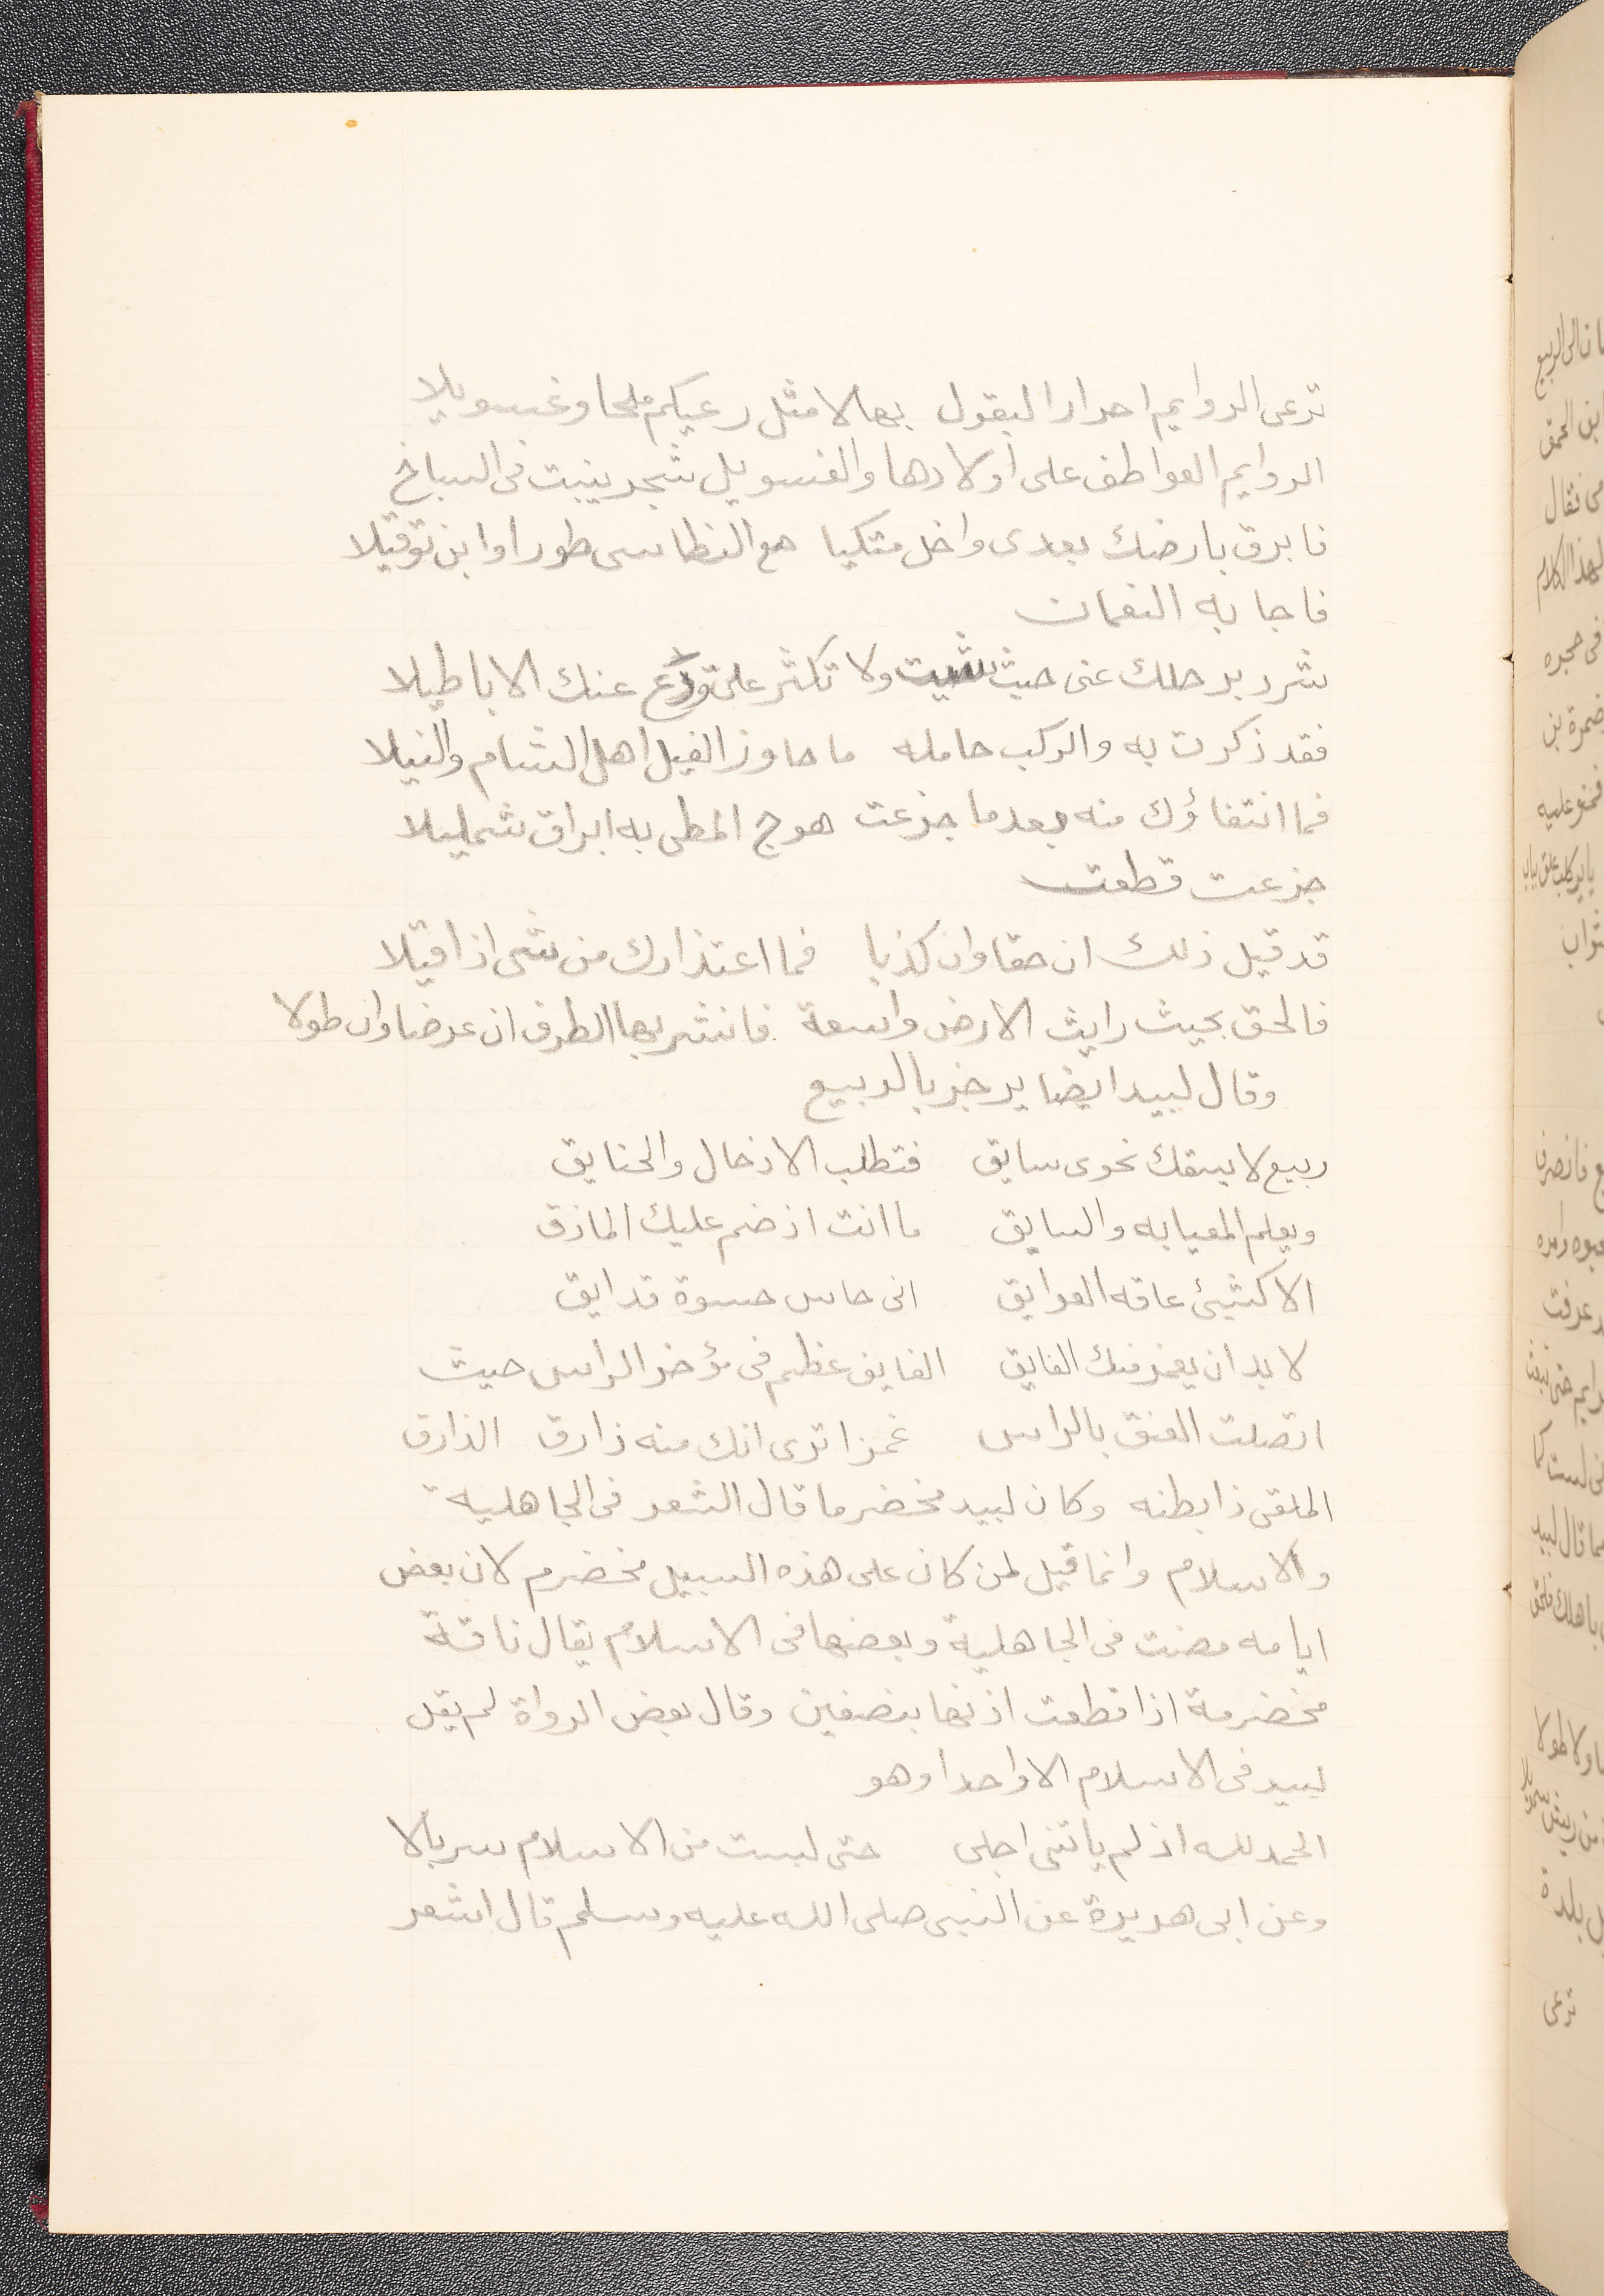 ترعى الروايم احرار البقول بها لا مثل رعيكم ملحا وغسويلا
الروايم العواطف على اولادها والغسويل شجر ينبت فى السباخ
فابرق بارضك بعدى واخل متكيا مع النطاسى طورا وابن توقيلا
فاجابه النعمان
شرد برحلك عنى حيث شيت ولا تكثر على ودع عنك الاباطيلا
فقد ذكرت به والركب حامله ما حاوز الفيل اهل الشام والنيلا
فما انتفاؤك منه بعد ما جزعت هوج المطى به ابراق شمليلا
جزعت قطعت
قد قيل ذلك ان حقا وان كذبا فما اعتذارك من شى اذا قيلا
فالحق بحيث رايث الارض واسعة فانشر بها الطرف ان عرضا وان طولا
وقال لبيد ايضا يرجز بالربيع
ربيع لا يسقك نحوى سايق فتطلب الاذحال والحنايق
ويعلم المعيا به والسايق ما انت اذ ضم عليك المازق
الا كشيئ عاقه العوايق انى حاس حسوة قدايق
لا بد ان يغمز منك الفايق الفايق عظم فى مؤخر الراس حيث
اتصلت العنق بالراس غمزا ترى انك منه ذارق الذارق
الملقى ذا بطنه وكان لبيد مخضرما قال الشعر فى الجاهلية
والاسلام وانما قيل لمن كان على هذه السبيل مخضرم لان بعض
ايامه مضت فى الجاهلية وبعضها فى الاسلام يقال ناقة
مخضرمة اذا قطعت اذنها بنصفين وقال بعض الرواة لم يقل
لبيد فى الاسلام الا واحدا وهو
الحمد لله اذ لم ياتنى اجلى حتى لبست من الاسلام سربالا
وعن ابى هريرة عن النبى صلى الله عليه وسلم قال اشعر